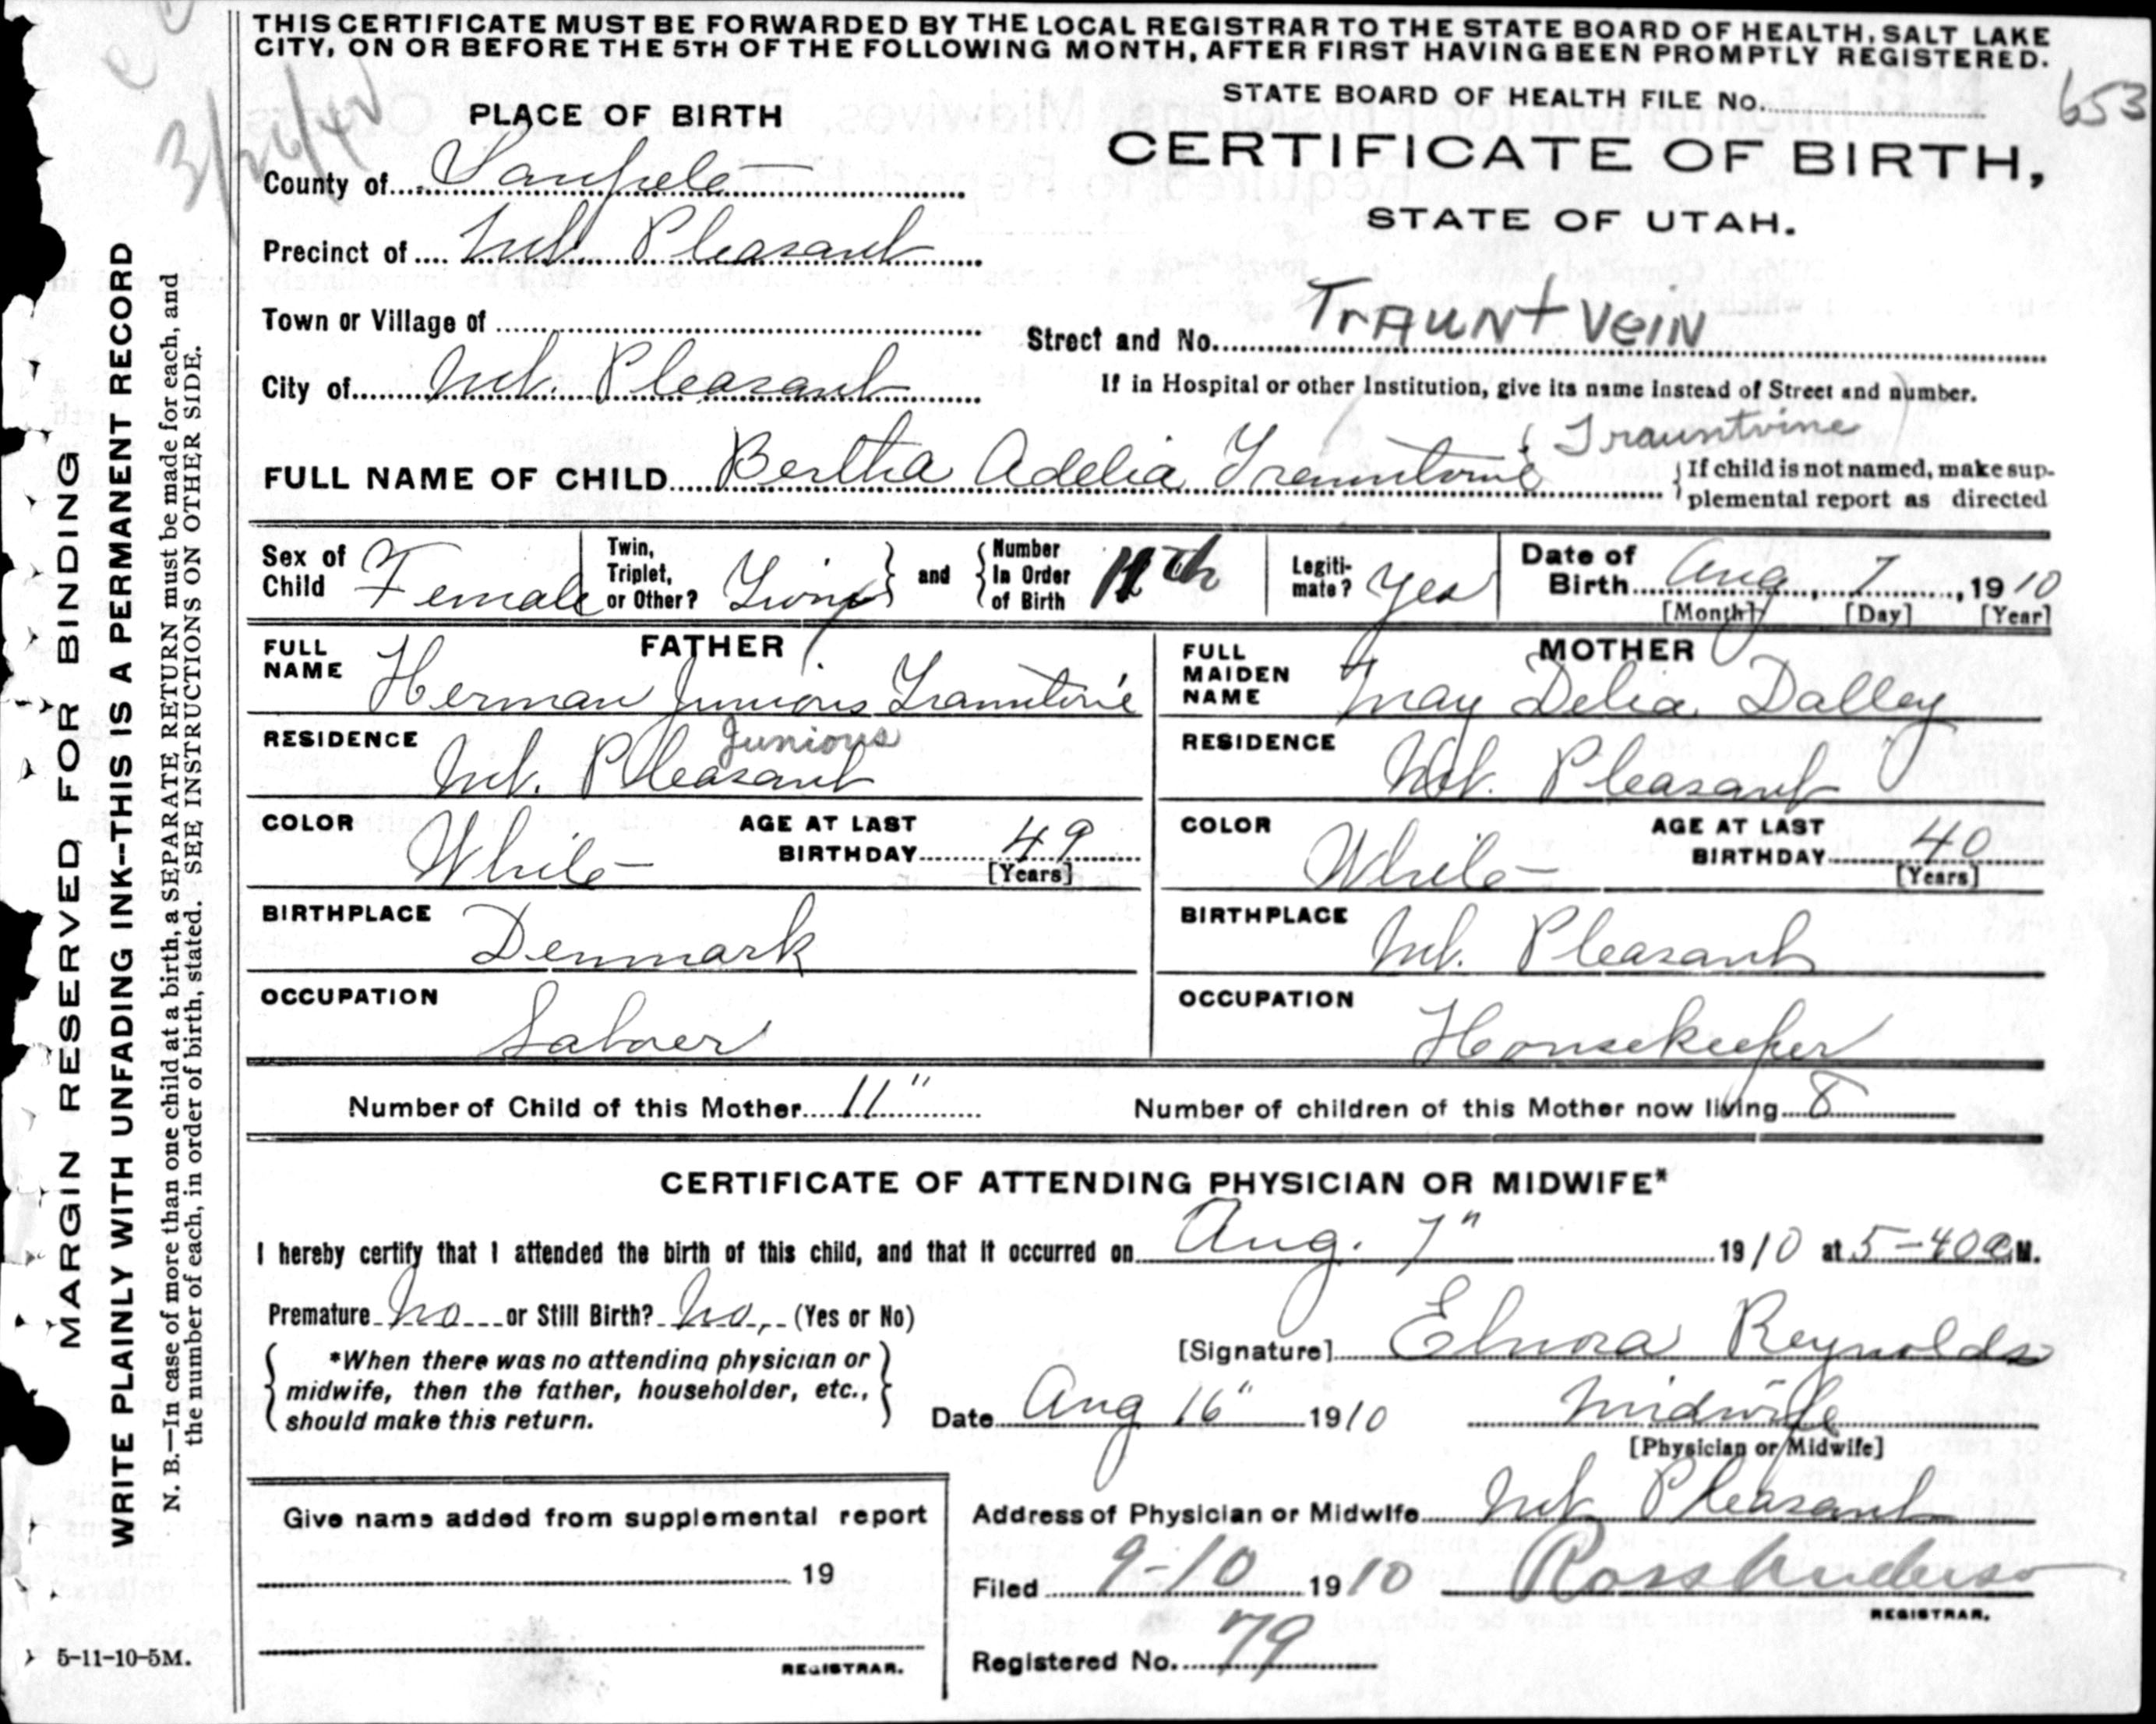 THIS CERTIFICATE MUST BE FORWARDED BY THE LOCAL REGISTRAR TO THE STATE BOARD OF HEALTH, SALT LAKE
CITY, ON OR BEFORE THE 5TH OF THE FOLLOWING MONTH, AFTER FIRST HAVING BEEN PROMPTLY REGISTERED.
STATE BOARD OF HEALTH FILE No. 653
3/26/42
PLACE OF BIRTH
CERTIFICATE OF BIRTH,
STATE OF UTAH.
County of Sanpete
Precinct of Mt. Pleasant
Town or Village of
Street and No. TRAUNtVeiN
City of Mt. Pleasant
If in Hospital or other Institution, give its name Instead of Street and number.
(Trauntvine)
FULL NAME OF CHILD Bertha Adelia Trauntvine
{If child is not named, make sup-
plemental report as directed
Sex of Child Female
Twin, Triplet, or Other? Living
and
Number In Order of Birth 11th
Legiti-mate? Yes
Date of Birth Aug, 7, 1910
[Month] [Day] [Year]
FATHER
FULL NAME Herman Junious Trauntvine
Junious
RESIDENCE Mt. Pleasant
COLOR White
AGE AT LAST BIRTHDAY 49
[Years]
BIRTHPLACE Denmark
OCCUPATION Laborer
MOTHER
FULL MAIDEN NAME May Delia Dalley
RESIDENCE Mt. Pleasant
COLOR White
AGE AT LAST BIRTHDAY 40
[Years]
BIRTHPLACE Mt. Pleasant
OCCUPATION Housekeeper
Number of Child of this Mother 11"
Number of children of this Mother now living 8
CERTIFICATE OF ATTENDING PHYSICIAN OR MIDWIFE*
I hereby certify that I attended the birth of this child, and that it occurred on Aug. 7" 1910 at 5-40 a M.
Premature No or Still Birth? No, (Yes or No)
*When there was no attending physician or
midwife, then the father, householder, etc.,
should make this return.
[Signature] Elnora Reynolds
Date Aug 16" 1910
Midwife
[Physician or Midwife]
Give name added from supplemental report
19
REGISTRAR.
Address of Physician or Midwife Mt Pleasant
Filed 9-10 1910
Ross Anderson
REGISTRAR.
Registered No. 79
MARGIN RESERVED FOR BINDING
WRITE PLAINLY WITH UNFADING INK--THIS IS A PERMANENT RECORD
N. B.—In case of more than one child at a birth, a SEPARATE RETURN must be made for each, and
the number of each, in order of birth, stated. SEE INSTRUCTIONS ON OTHER SIDE.
5-11-10-5M.